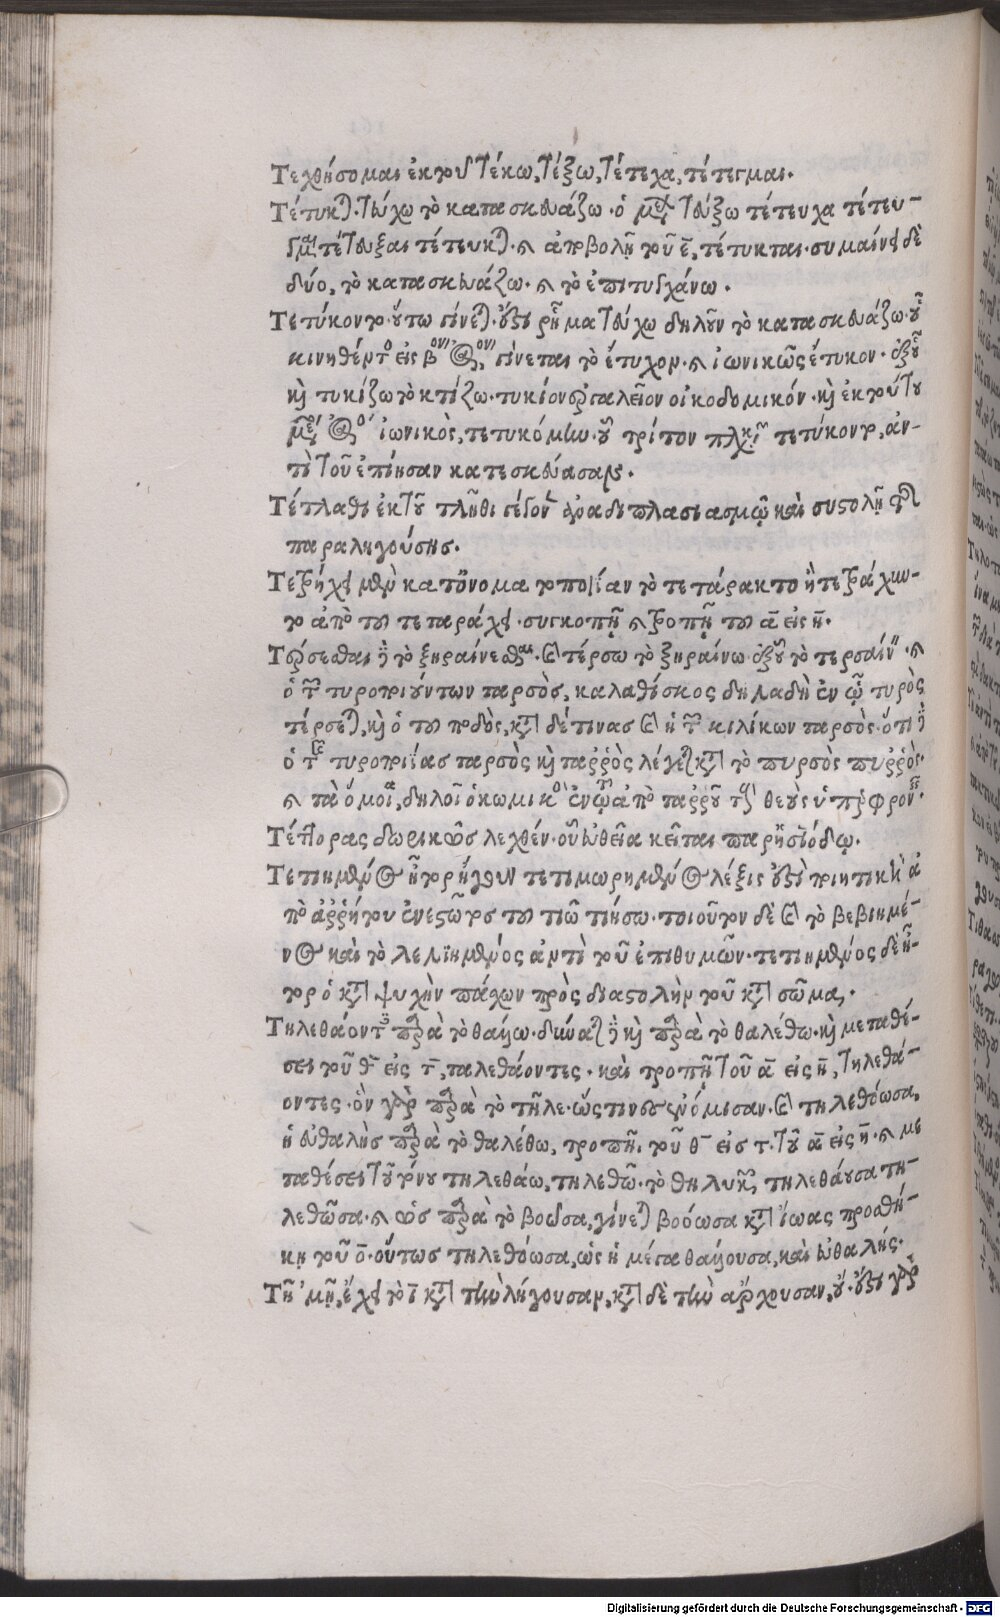 Τεχθήσομαι ἐκ τοῦ τέκω, τέξω, τέτεχα, τέτεγμαι.
Τέτυκται. τεύχω τὸ κατασκευάζω. ὁ μέλλων τεύξω τέτευχα τέτευ-
γμαι τέτευξαι τέτευκται. καὶ ἀποβολῇ τοῦ ε̄, τέτυκται. συμαίνει δὲ
δύο, τὸ κατασκευάζω. καὶ τὸ ἐπιτυγχάνω.
Τετύκοντο. οὕτω γίνεται. ἔστι ῥῆμα τεύχω δηλοῦν τὸ κατασκευάζω. οὗ
κινηθέντος εἰς βον ἀόριστον, γίνεται τὸ ἔτυχον. καὶ ἰωνικῶς ἔτυκον. ἐξ οὗ
καὶ τυκίζω τὸ κτίζω. τυκίον ἐργαλεῖον οἰκοδομικόν. καὶ ἐκ τούτου
μέσος ἀόριστος ἰωνικὸς, τετυκόμην. οὗ τρίτον πληθυντικῶν τετύκοντο, ἀν-
τὶ τοῦ ἐποίησαν κατεσκεύασαν.
Τέτλαθι ἐκ τοῦ τλῆθι γέγονεν ἀναδιπλασιασμῷ καὶ συστολῇ τῆς
παραληγούσης.
Τετρήχει μὲν κατ' ὄνοματοποιίαν τὸ τετάρακτο ἢ τετράχυν-
το ἀπὸ τοῦ τεταράχει. συγκοπῇ καὶ τροπῇ τοῦ ᾱ εἰς η̄.
Τέρσεσθαι ἢ τὸ ξηραίνεσθαι. καὶ τέρσω τὸ ξηραίνω. ἐξ οὗ τὸ τερσαίνω. καὶ
ὁ τῶν τυροποιούντων ταρσὸς, καλαθίσκος δηλαδὴ ἐν ᾧ τυρὸς
τέρσεται, καὶ ὁ τοῦ ποδὸς, κατὰ δέ τινας καὶ ἡ τῶν κιλίκων ταρσὸς. ὅτι ἢ
ὁ τῆς τυροποιίας ταρσὸς καὶ ταρρὸς λέγεται κατὰ τὸ πυρσὸς πυρρός.
καὶ τὰ ὅμοια, δηλοῖ ὁ κωμικὸς ἐν τῷ ἀπὸ ταρροῦ τοὺς θεοὺς ὑπερφρονεῖς.
Τέττορας δωρικῶς λεχθέν. οὗ εὐθεῖα κεῖται παρ' ἡσιόδῳ.
Τετιημένος ἦτορ ἤγουν τετιμωρημένος λέξις ἐστὶ ποιητικὴ ἀ
πὸ ἀρρήτου ἐνεστῶτος τοῦ τιῶ τιήσω. τοιοῦτον δὲ καὶ τὸ βεβιημέ-
νος καὶ τὸ λελιημένος ἀντὶ τοῦ ἐπιθυμῶν. τετιημένος δὲ ἦ-
τορ ὁ κατὰ ψυχὴν πάχων πρὸς διαστολὴν τοῦ κατὰ σῶμα.
Τηλεθάοντες παρὰ τὸ θαήω. δύναται ἢ καὶ παρὰ τὸ θαλέθω. καὶ μεταθέ-
σει τοῦ θ̄ εἰς τ̄, ταλεθάοντες. καὶ τροπῇ τοῦ ᾱ εἰς η̄, τηλεθά-
οντες. οὐ γὰρ παρὰ τὸ τῆλε. ὥς τινες ἐνόμισαν. καὶ τηλεθόωσα,
ἡ εὐθαλὴς παρὰ τὸ θαλέθω, τροπῇ. τοῦ θ̄ εἰς τ. τοῦ ᾱ εἰς η̄. καὶ με
ταθέσει τοῦ τόνου τηλεθάω, τηλεθῶ. τὸ θηλυκὸν, τηλεθάουσα τη-
λεθῶσα. καὶ ὡς παρὰ τὸ βοῶσα, γίνεται βοόωσα κατὰ ἴωνας προσθή-
κῃ τοῦ ο̄. οὕτως τηλεθόωσα, ὡς ἡ μέγα θαήουσα, καὶ εὐθαλής.
Τῆ μῆ, ἔχει τὸ ῑ κατὰ τὴν λήγουσαν, κατὰ δὲ τὴν ἄρχουσαν, οὔ. ἔστι γὰρ